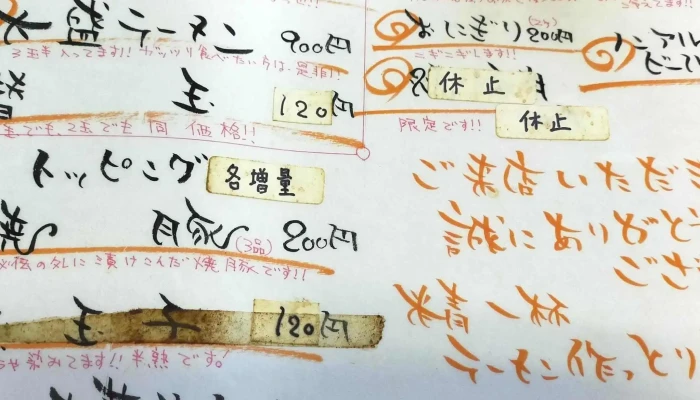 塩ラーメン 900円
3玉も入ってます!! ガッツリ食べたい方は是非!!
替 玉 120円
玉でも、2玉でも同価格!!
トッピング 各増量
焼 豚 (3品) 800円
に漬けこんだ焼豚です!!
玉子 120円
みてます!! 半熟です。
おにぎり (2ケ) 200円
にぎにぎします!!
休止
限定です!! 休止
ノンアル
ビー
ご来店いただき
誠にありがと
ござ
精一杯
ラーメン作っとり